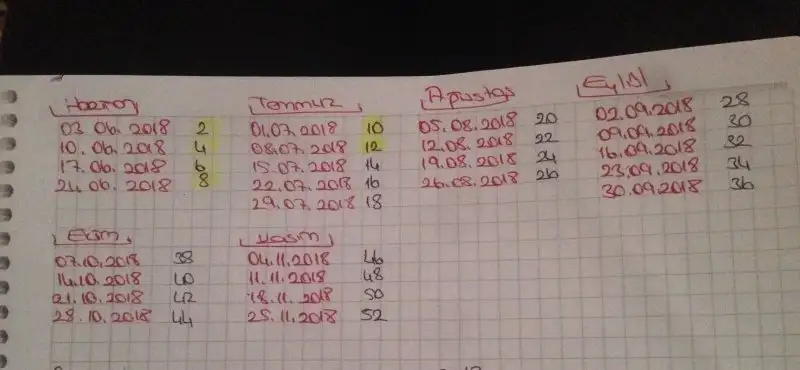 Haziran
03.06.2018 2
10.06.2018 4
17.06.2018 6
24.06.2018 8
Temmuz
01.07.2018 10
08.07.2018 12
15.07.2018 14
22.07.2018 16
29.07.2018 18
Ağustos
05.08.2018 20
12.08.2018 22
19.08.2018 24
26.08.2018 26
Eylül
02.09.2018 28
09.09.2018 30
16.09.2018 32
23.09.2018 34
30.09.2018 36
Ekim
07.10.2018 38
14.10.2018 40
21.10.2018 42
28.10.2018 44
Kasım
04.11.2018 46
11.11.2018 48
18.11.2018 50
25.11.2018 52